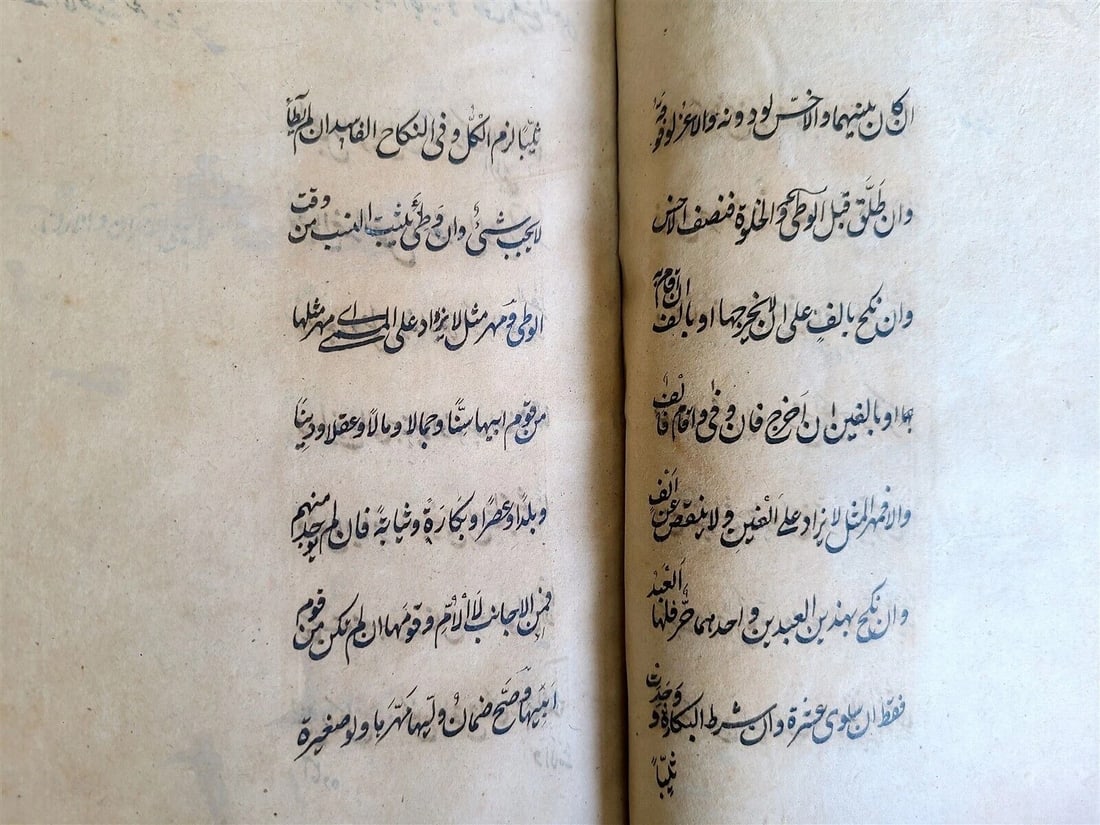 ان كان بينهما والاخسّ لو دونه والاعز لو فوقه
وان طَلَّقَ قبل الوطئ والخلوة فنصف الاخسّ
وان نكح بالف على ان لا يخرجها او بالف ان اقام
بها او بالفين ان اَخرج فان وفى واقام فالف
والا فمهر المثل لا يزاد على الفين ولا ينقص عن الف
وان نكح بهذين العبدين واحدهما حرّ فلها العبد
فقط ان ساوى عشرة وان شرط البكارة ووجدت
ثيّبًا
ثيّبًا لزم الكُلُّ وفى النكاح الفاسد ان لم يطأ
لا يجب شئٌ وان وَطِئَ يثبت النسب من وقت
الوطئ ومهر مثل لا يزاد على المسمى اى مهر مثلها
من قوم ابيها سنًّا وجمالا ومالاً وعقلا ودينًا
وبلدًا وعصرًا وبَكارَةً وثيابةً فان لم يوجد منهم
فمن الاجانب لَا الْاُمِّ وقومها ان لم تكن من قوم
ابيها وصَحَّ ضمانُ وليّها مهرَها ولو صغيرة